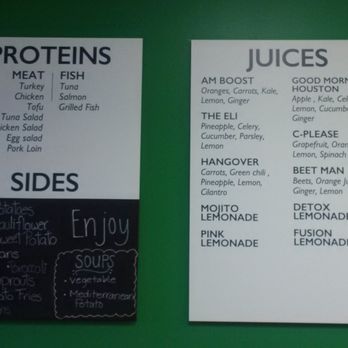 PROTEINS
MEAT
Turkey
Chicken
Tofu
Tuna Salad
Chicken Salad
Egg salad
Pork Loin
FISH
Tuna
Salmon
Grilled Fish
SIDES
Potato
Fries
Broccoli
Enjoy
SOUPS
• vegetable
• Mediterranean
Potato
JUICES
AM BOOST
Oranges, Carrots, Kale,
Lemon, Ginger
THE ELI
Pineapple, Celery,
Cucumber, Parsley,
Lemon
HANGOVER
Carrots, Green chili ,
Pineapple, Lemon,
Cilantro
MOJITO
LEMONADE
PINK
LEMONADE
GOOD MORN
HOUSTON
Apple , Kale, Cel
Lemon, Cucum
Ginger
C-PLEASE
Grapefruit, Oran
Lemon, Spinach
BEET MAN
Beets, Orange Ju
Ginger, Lemon
DETOX
LEMONADE
FUSION
LEMONADE